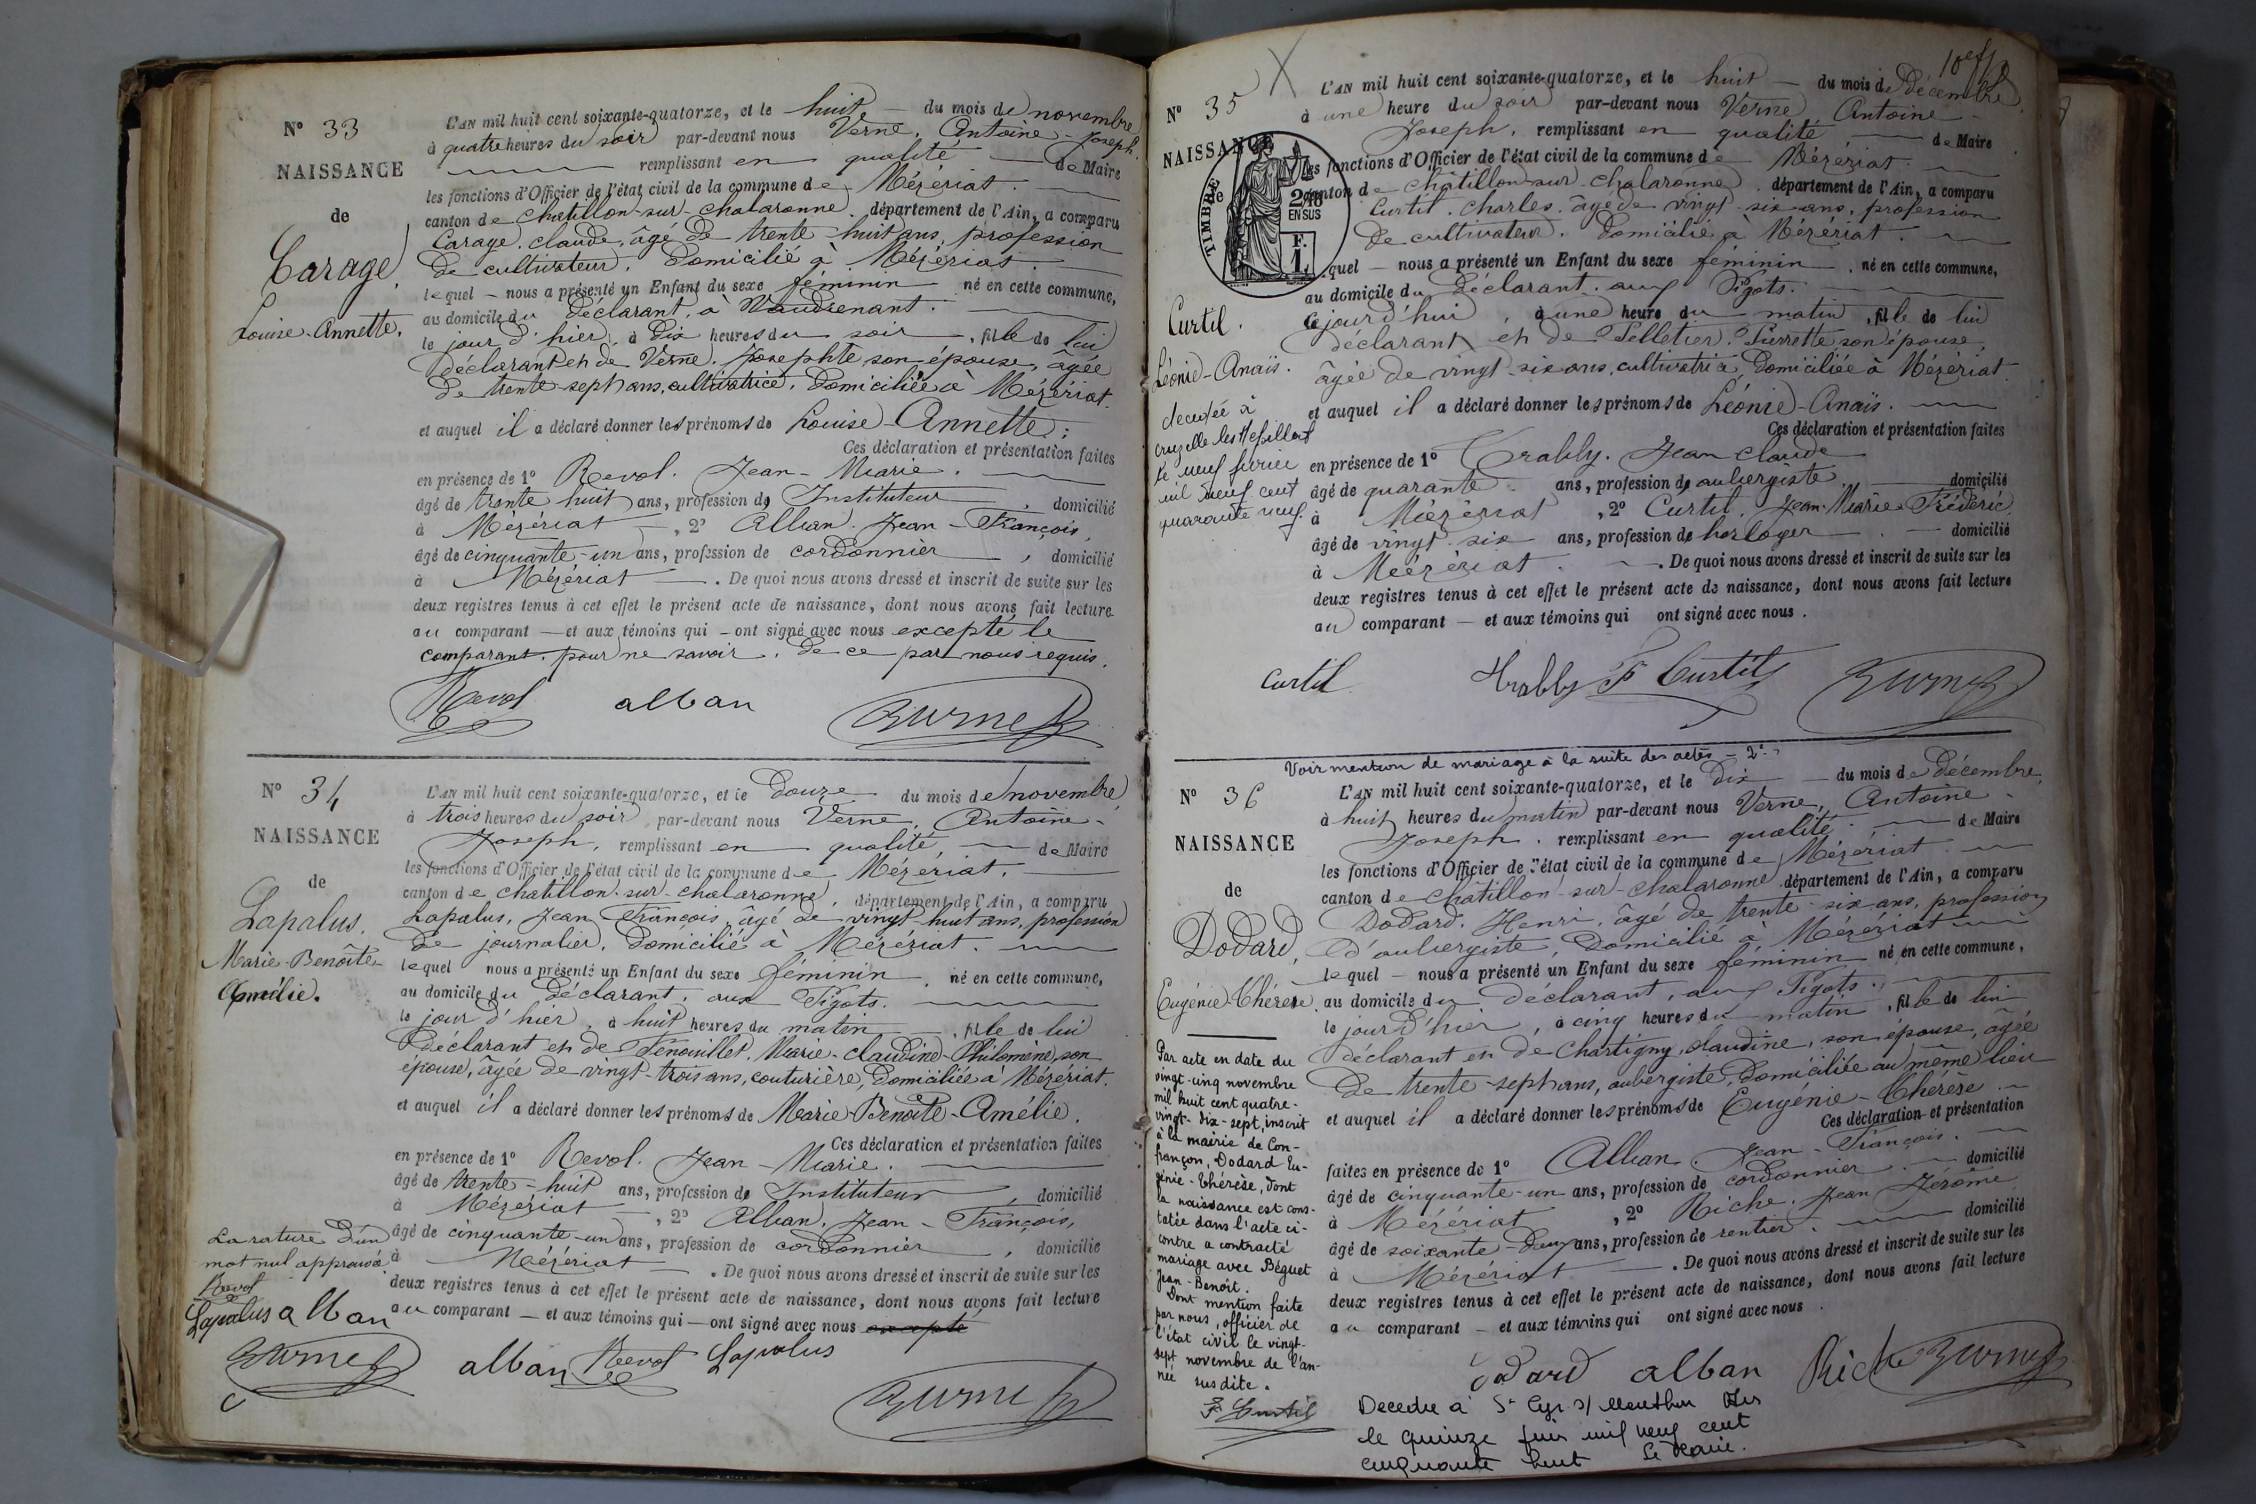 N° 33
NAISSANCE
de
Carage,
Louise-Annette.
L'AN mil huit cent soixante-quatorze, et le huit du mois de novembre
à quatre heures du soir par-devant nous Verne, Antoine-Joseph.
remplissant en qualité de Maire
les fonctions d'Officier de l'état civil de la commune de Mézériat.
canton de Chatillon-sur-Chalaronne, département de l'Ain, a comparu
Carage, Claude, âgé de trente-huit ans, profession
de cultivateur, domicilié à Mézériat.
lequel nous a présenté un Enfant du sexe féminin né en cette commune,
au domicile du déclarant, à Vaudrenant.
le jour d'hier, à dix heures du soir, fille de lui
déclarant et de Verne, Josephte son épouse, âgée
de trente-sept ans, cultivatrice, domiciliée à Mézériat.
et auquel il a déclaré donner les prénoms de Louise-Annette;
Ces déclaration et présentation faites
en présence de 1° Revol. Jean-Marie.
âgé de trente huit ans, profession de Instituteur, domicilié
à Mézériat, 2° Alban. Jean-François,
âgé de cinquante-un ans, profession de cordonnier, domicilié
à Mézériat. De quoi nous avons dressé et inscrit de suite sur les
deux registres tenus à cet effet le présent acte de naissance, dont nous avons fait lecture
au comparant et aux témoins qui ont signé avec nous excepté le
comparant, pour ne savoir, de ce par nous requis.
Revol alban Verne
N° 34
NAISSANCE
de
Lapalus.
Marie-Benoîte-
Amélie.
L'AN mil huit cent soixante-quatorze, et le douze du mois de novembre
à trois heures du soir par-devant nous Verne, Antoine-
Joseph, remplissant en qualité, de Maire
les fonctions d'Officier de l'état civil de la commune de Mézériat.
canton de Chatillon-sur-Chalaronne, département de l'Ain, a comparu
Lapalus, Jean François, âgé de vingt-huit ans, profession
de journalier, domicilié à Mézériat.
lequel nous a présenté un Enfant du sexe féminin, né en cette commune,
au domicile du déclarant, aux Pigots.
le jour d'hier, à huit heures du matin, fille de lui
déclarant et de Fenouillet, Marie-Claudine-Philomène, son
épouse, âgée de vingt-trois ans, couturière, domiciliés à Mézériat.
et auquel il a déclaré donner les prénoms de Marie-Benoîte-Amélie.
Ces déclaration et présentation faites
en présence de 1° Revol. Jean-Marie.
âgé de trente-huit ans, profession de Instituteur, domicilié
à Mézériat, 2° Alban. Jean-François,
âgé de cinquante-un ans, profession de cordonnier, domicilié
à Mézériat. De quoi nous avons dressé et inscrit de suite sur les
deux registres tenus à cet effet le présent acte de naissance, dont nous avons fait lecture
au comparant et aux témoins qui ont signé avec nous excepté
La rature d'un
mot nul approuvé
Revol
Lapalus alban
Verne
alban Revol Lapalus
Verne
N° 35
NAISSANCE
de
TIMBRE
2/10
EN SUS
F.
1.
Curtil.
Léonie-Anaïs.
décédée à
le neuf février
mil neuf cent
quarante neuf.
L'AN mil huit cent soixante-quatorze, et le huit du mois de Décembre
à une heure du soir par-devant nous Verne Antoine-
Joseph, remplissant en qualité de Maire
les fonctions d'Officier de l'état civil de la commune de Mézériat.
canton de Chatillon-sur-Chalaronne, département de l'Ain, a comparu
Curtil, Charles, âgé de vingt-six ans, profession
de cultivateur, domicilié à Mézériat.
quel nous a présenté un Enfant du sexe féminin, né en cette commune,
au domicile du déclarant, aux Pigots.
le jourd'hui, à une heure du matin, fille de lui
déclarant et de Pelletier, Pierrette son épouse,
âgée de vingt-six ans, cultivatrice, domiciliée à Mézériat.
et auquel il a déclaré donner les prénoms de Léonie-Anaïs.
Ces déclaration et présentation faites
en présence de 1° Trably. Jean Claude
âgé de quarante ans, profession de aubergiste, domicilié
à Mézériat, 2° Curtil. Jean-Marie-Frédéric,
âgé de vingt-six ans, profession de horloger domicilié
à Mézériat. De quoi nous avons dressé et inscrit de suite sur les
deux registres tenus à cet effet le présent acte de naissance, dont nous avons fait lecture
au comparant et aux témoins qui ont signé avec nous.
Curtil Trably F Curtil Verne
Voir mention de mariage à la suite des actes - 2°
N° 36
NAISSANCE
de
Dodard,
Eugénie-Thérèse
Par acte en date du
vingt-cinq novembre
mil huit cent quatre-
vingt-dix-sept, inscrit
à la mairie de Con-
françon, Dodard Eu-
génie-Thérèse, dont
la naissance est cons-
tatée dans l'acte ci-
contre a contracté
mariage avec Béguet
Jean-Benoît.
Dont mention faite
par nous, officier de
l'état civil le vingt-
sept novembre de l'an-
née susdite.
F Curtil
L'AN mil huit cent soixante-quatorze, et le dix du mois de décembre,
à huit heures du matin par-devant nous Verne, Antoine-
Joseph, remplissant en qualité de Maire
les fonctions d'Officier de l'état civil de la commune de Mézériat.
canton de Chatillon-sur-Chalaronne département de l'Ain, a comparu
Dodard, Henri, âgé de trente-six ans, profession
d'aubergiste, domicilié à Mézériat
lequel nous a présenté un Enfant du sexe féminin né en cette commune,
au domicile du déclarant, aux Pigots.
le jour d'hier, à cinq heures du matin, fille de lui
déclarant et de Chartigny, Claudine, son épouse, âgée
de trente-sept ans, aubergiste, domiciliée au même lieu
et auquel il a déclaré donner les prénoms de Eugénie-Thérèse
Ces déclaration et présentation
faites en présence de 1° Alban. Jean-François.
âgé de cinquante-un ans, profession de cordonnier domicilié
à Mézériat, 2° Riche. Jean Jérôme
âgé de soixante-deux ans, profession de rentier. domicilié
à Mézériat. De quoi nous avons dressé et inscrit de suite sur les
deux registres tenus à cet effet le présent acte de naissance, dont nous avons fait lecture
au comparant et aux témoins qui ont signé avec nous.
Dodard alban Riche Verne
Décédée à St Cyr s/ Menthon
le quinze juin mil neuf cent
cinquante huit Le Maire.